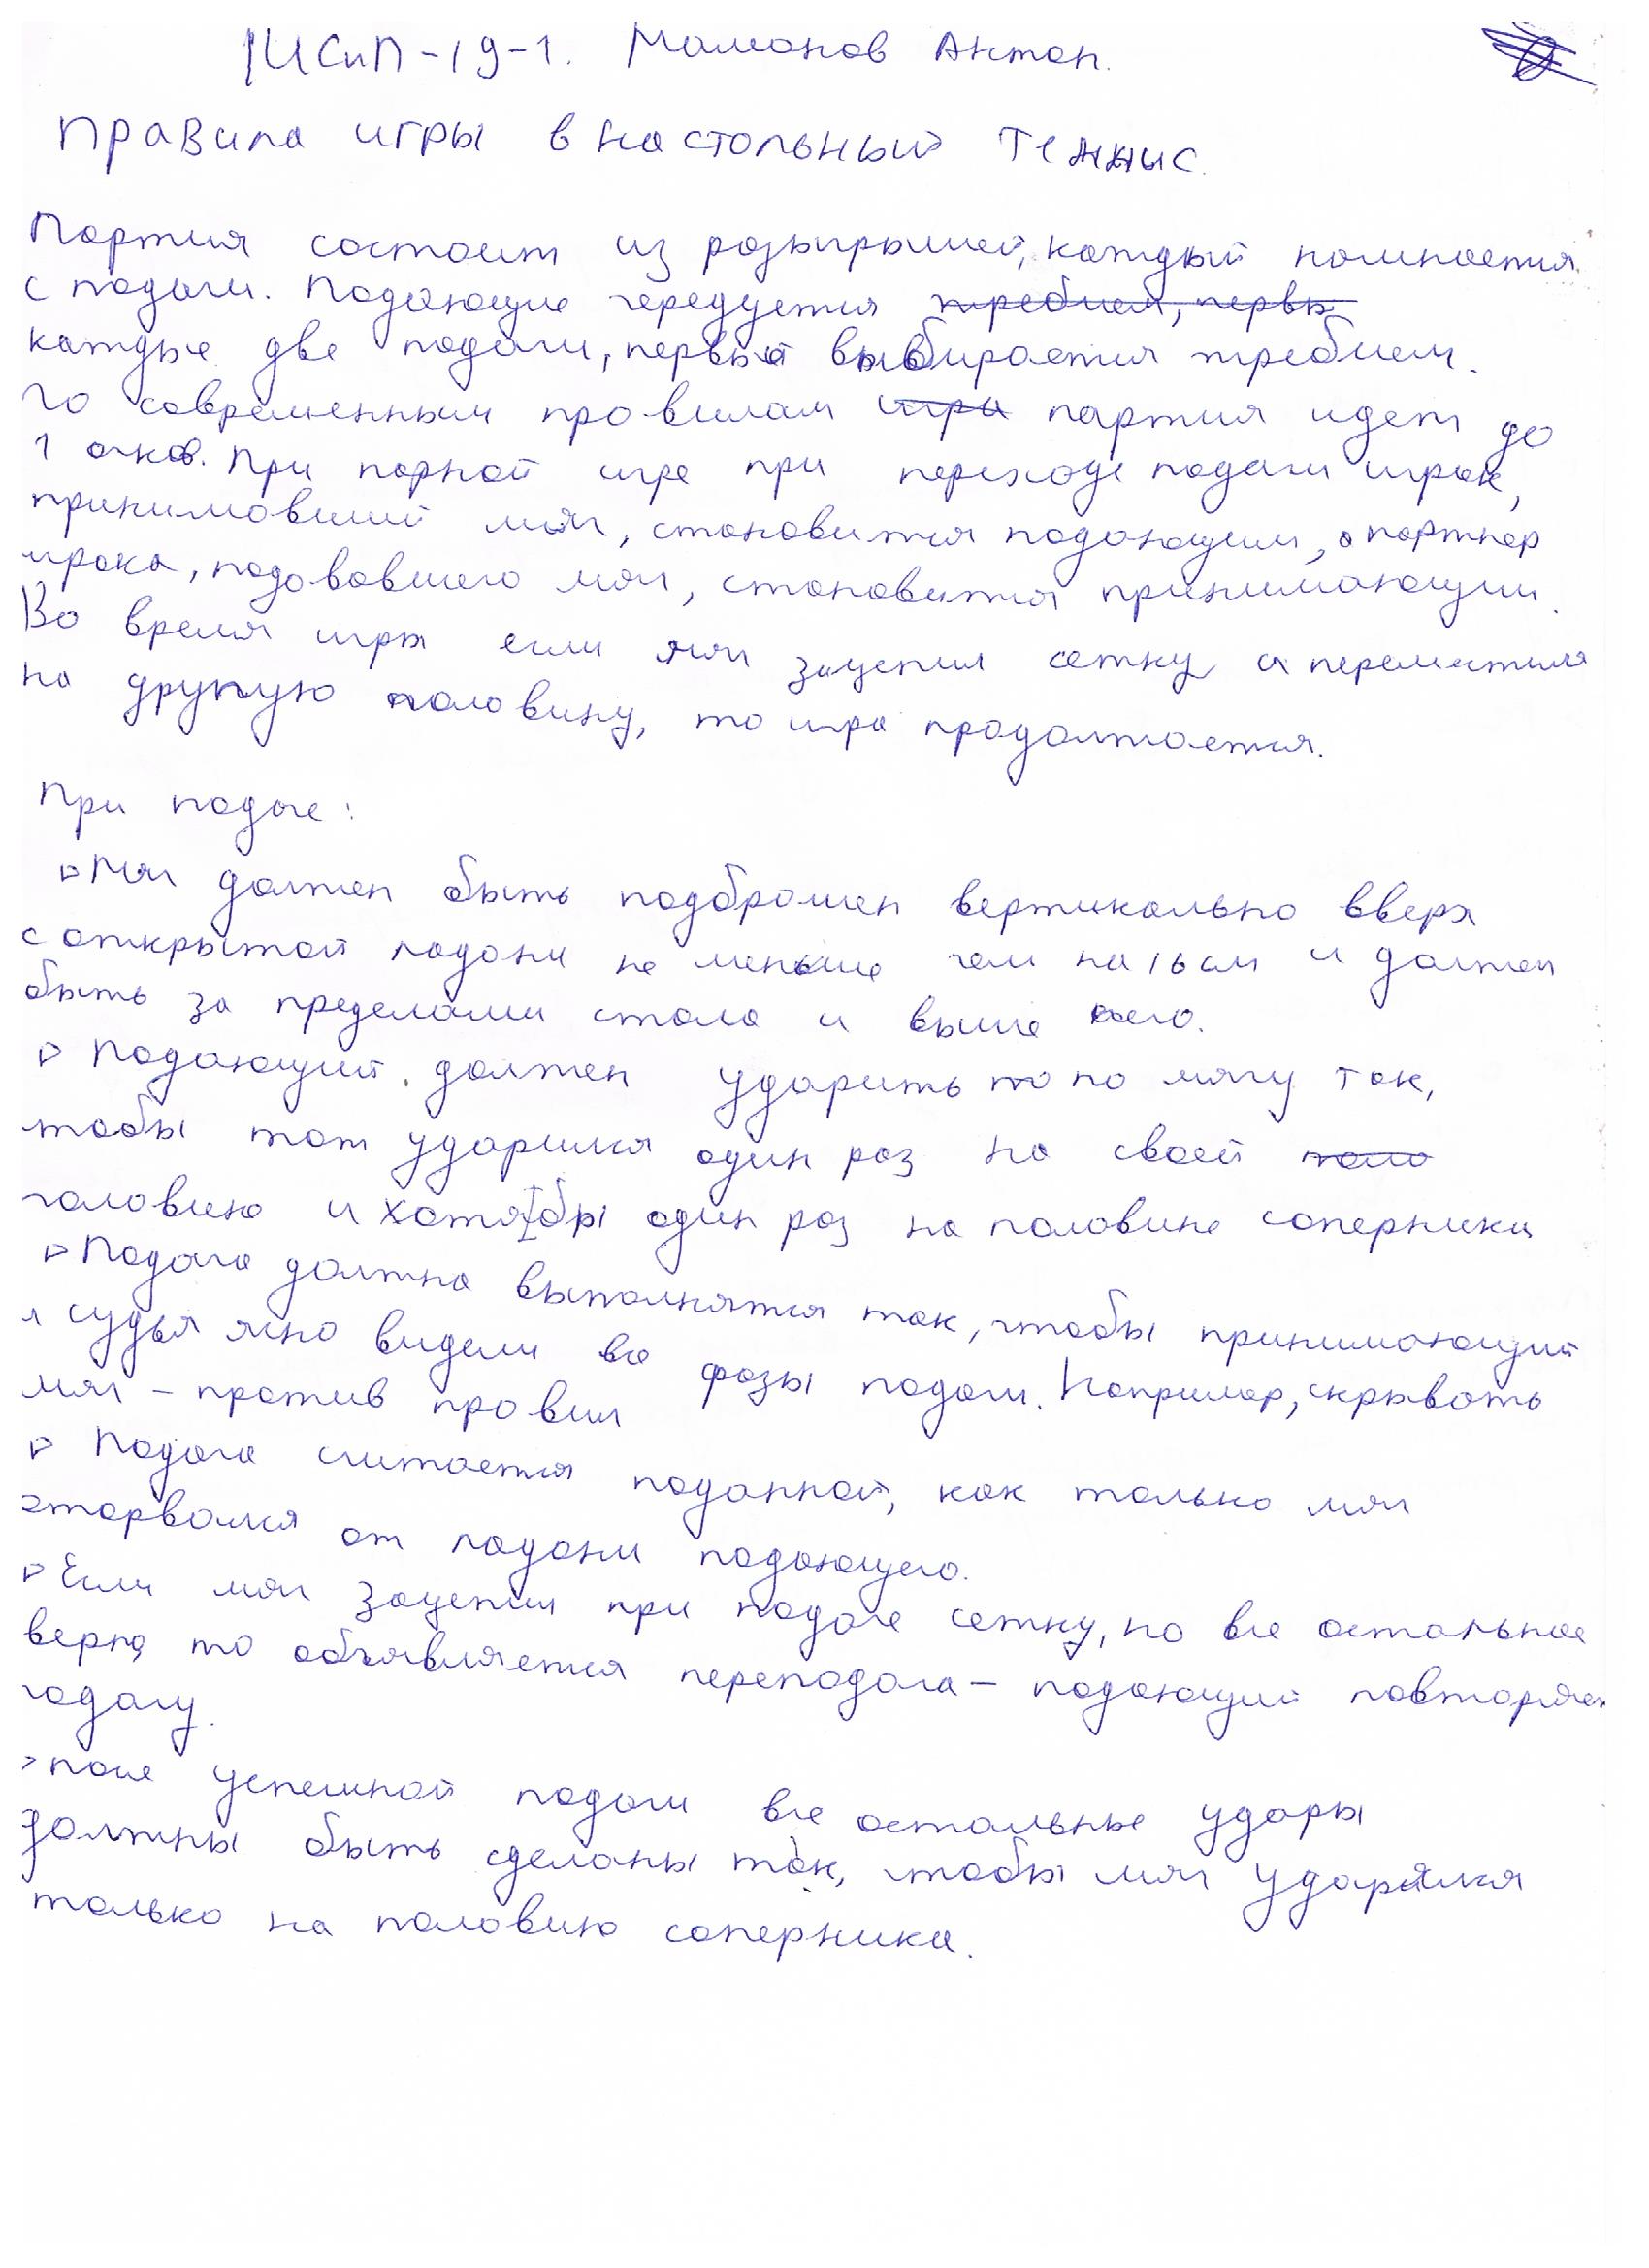 1ИСиП-19-1. Мамонов Антон.
Правила игры в настольный теннис.
Партия состоит из розыгрышей, каждый начинается
с подачи. Подающие чередуется жребием, первы
каждые две подачи, первый выбирается жребием.
По современным правилам игра партия идет до
1 очков. При парной игре при переходе подачи игрок,
принимавший мяч, становится подающим, а партнер
игрока, подававшего мяч, становится принимающим.
Во время игры если мяч зацепил сетку и переместился
на другую половину, то игра продолжается.
При подаче:
▷ Мяч должен быть подброшен вертикально вверх
с открытой ладони не меньше чем на 16 см и должен
быть за пределами стола и выше него.
▷ Подающий должен ударить по мячу так,
чтобы тот ударился один раз на своей поло
половине и хотя бы один раз на половине соперника
▷ Подача должна выполнятся так, чтобы принимающий
и судья ясно видели все фазы подачи. Например, скрывать
мяч - против правил
▷ Подача считается поданной, как только мяч
оторвался от ладони подающего.
▷ Если мяч зацепил при подаче сетку, но все остальное
верно, то объявляется переподача - подающий повторяет
подачу.
▷ после успешной подачи все остальные удары
должны быть сделаны так, чтобы мяч ударялся
только на половину соперника.